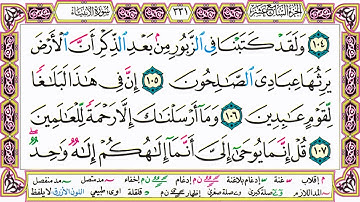 الجزء السابع عشر ٣٣١ سورة الأنبياء
١٠٤ وَلَقَدْ كَتَبْنَا فِي ٱلزَّبُورِ مِنۢ بَعْدِ ٱلذِّكْرِ أَنَّ ٱلْأَرْضَ
يَرِثُهَا عِبَادِيَ ٱلصَّٰلِحُونَ ١٠٥ إِنَّ فِي هَٰذَا لَبَلَٰغًا
لِّقَوْمٍ عَٰبِدِينَ ١٠٦ وَمَآ أَرْسَلْنَٰكَ إِلَّا رَحْمَةً لِّلْعَٰلَمِينَ
١٠٧ قُلْ إِنَّمَا يُوحَىٰٓ إِلَيَّ أَنَّمَآ إِلَٰهُكُمْ إِلَٰهٌ وَٰحِدٌ